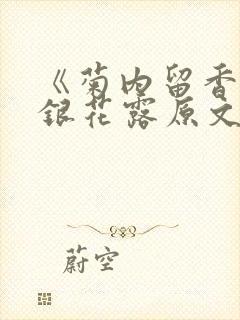 《菊内留香
銀花露原文
蔚空